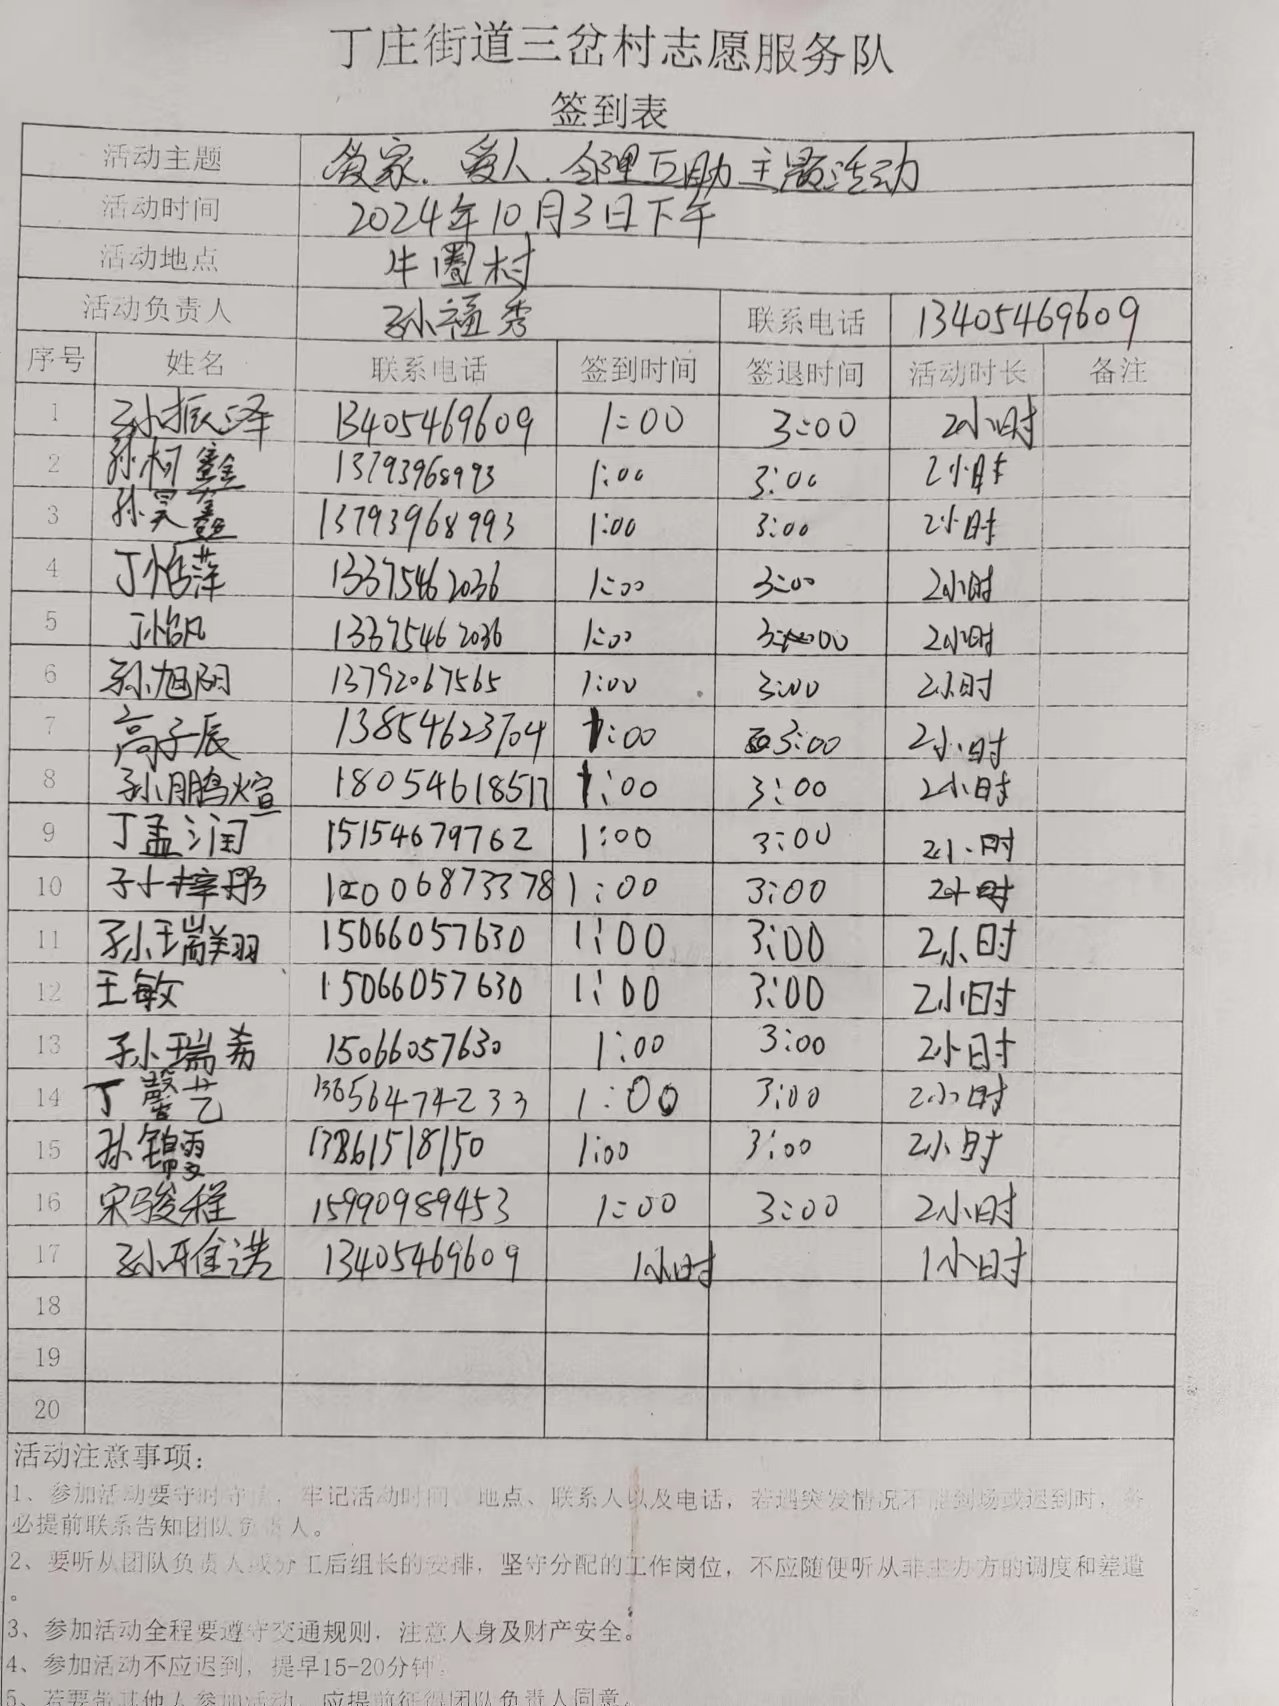 丁庄街道三岔村志愿服务队
签到表
活动主题 爱家、爱人、邻里互助主题活动
活动时间 2024年10月3日下午
活动地点 牛圈村
活动负责人 孙福秀 联系电话 13405469609
序号 姓名 联系电话 签到时间 签退时间 活动时长 备注
1 孙振泽 13405469609 1:00 3:00 2小时
2 孙柯鑫 13793968993 1:00 3:00 2小时
3 孙昊鑫 13793968993 1:00 3:00 2小时
4 丁怡萍 13375462036 1:00 3:00 2小时
5 丁怡凡 13375462036 1:00 3:00 2小时
6 孙旭阳 13792067565 1:00 3:00 2小时
7 高子辰 13854623704 1:00 3:00 2小时
8 孙鹏煊 18054618517 1:00 3:00 2小时
9 丁孟润 15154679762 1:00 3:00 2小时
10 孙梓彤 1:00 3:00 2小时
11 孙瑞翔 15066057630 1:00 3:00 2小时
12 王敏 15066057630 1:00 3:00 2小时
13 孙瑞希 15066057630 1:00 3:00 2小时
14 丁馨艺 13656474233 1:00 3:00 2小时
15 孙锦雯 13861518150 1:00 3:00 2小时
16 宋骏程 15990989453 1:00 3:00 2小时
17 孙 13405469609 1小时 1小时
18
19
20
活动注意事项：
1、参加活动要守时守信，牢记活动时间、地点、联系人以及电话，若遇突发情况不能到场或迟到时，务
必提前联系告知团队负责人。
2、要听从团队负责人或分工后组长的安排，坚守分配的工作岗位，不应随便听从非主办方的调度和差遣
。
3、参加活动全程要遵守交通规则，注意人身及财产安全。
4、参加活动不应迟到，提早15-20分钟。
5、若要带其他人参加活动，应提前征得团队负责人同意。